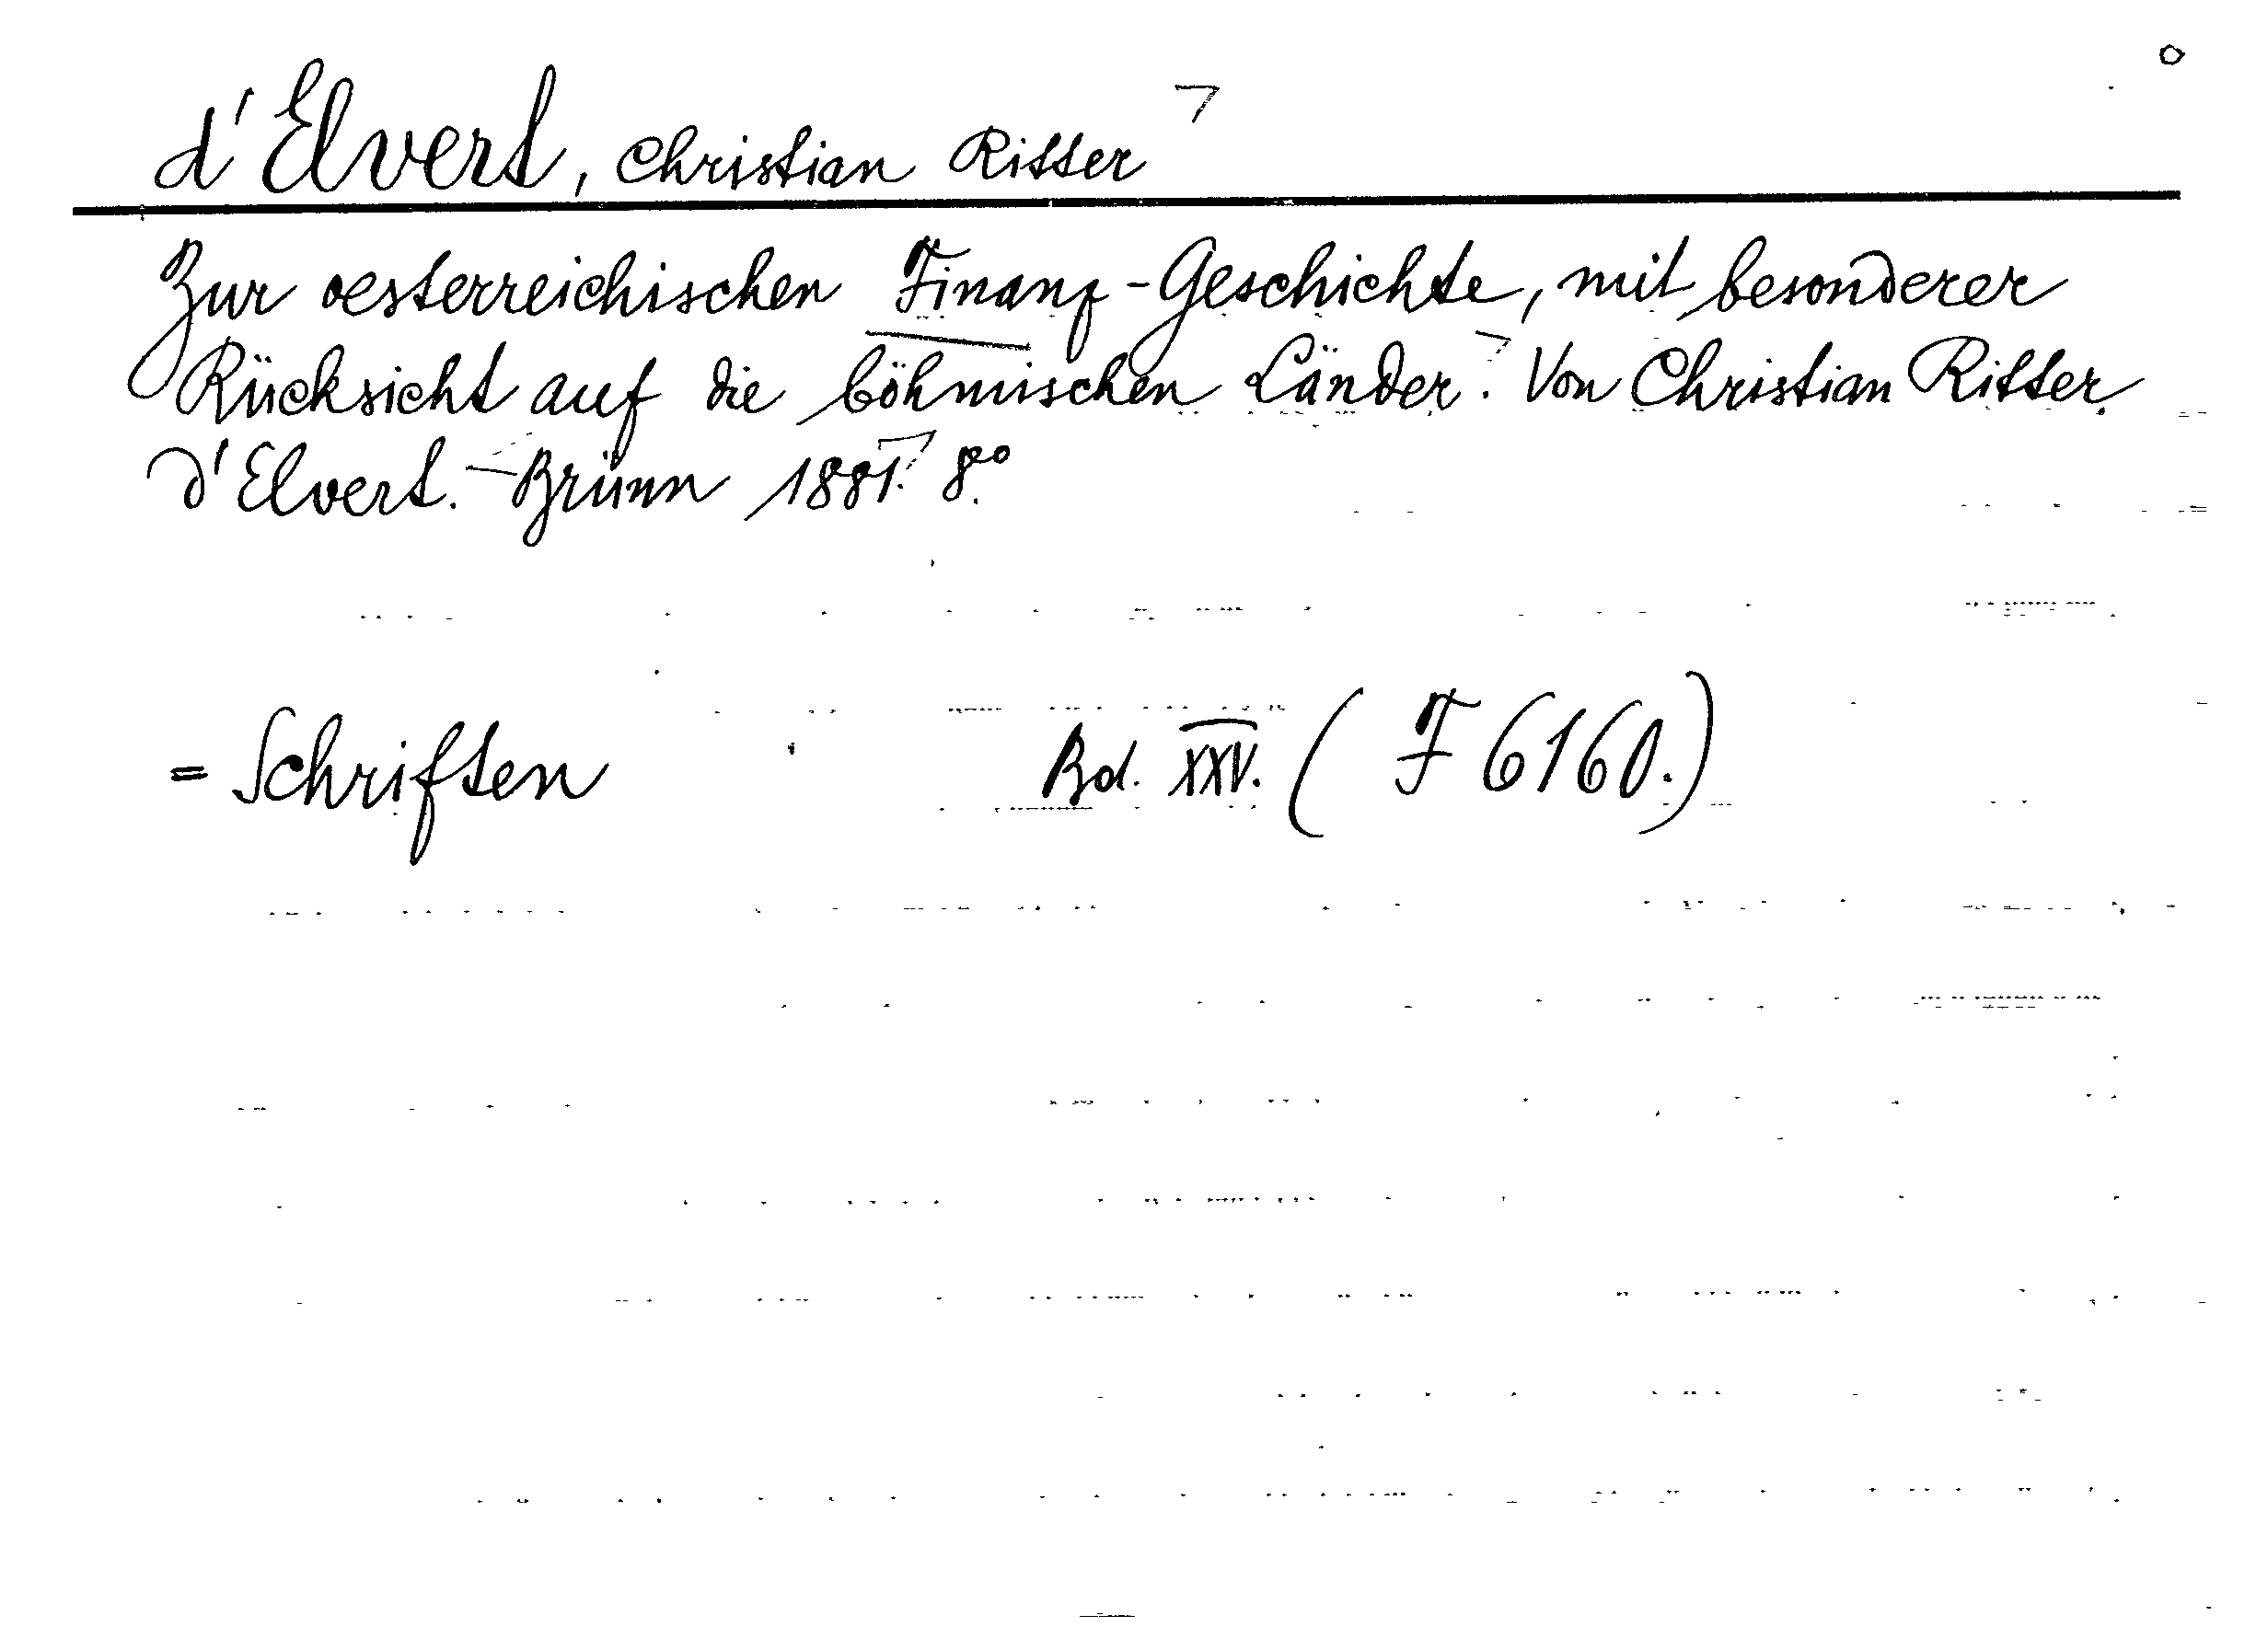 d'Elvert, Christian Ritter
Zur oesterreichischen Finanz-Geschichte, mit besonderer
Rücksicht auf die böhmischen Länder. Von Christian Ritter
d'Elvert. – Brünn 1881. 8.°
= Schriften Bd. XXV. ( F 6160.)